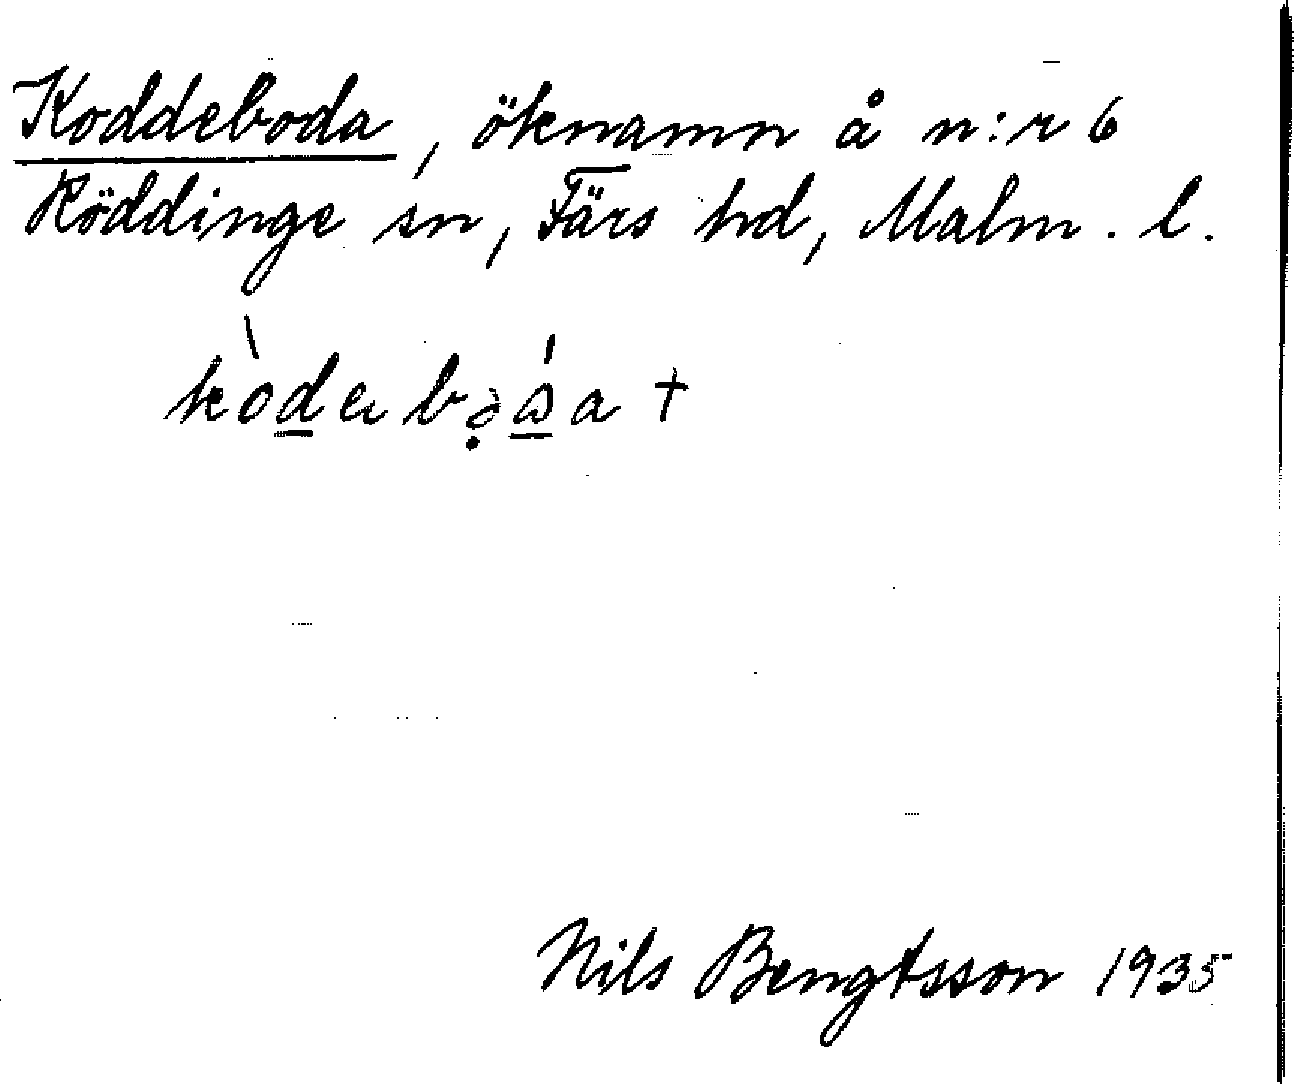 Koddeboda, öknamn å n:r 6
Röddinge sn, Färs hd, Malm. l.
Nils Bengtsson 1935